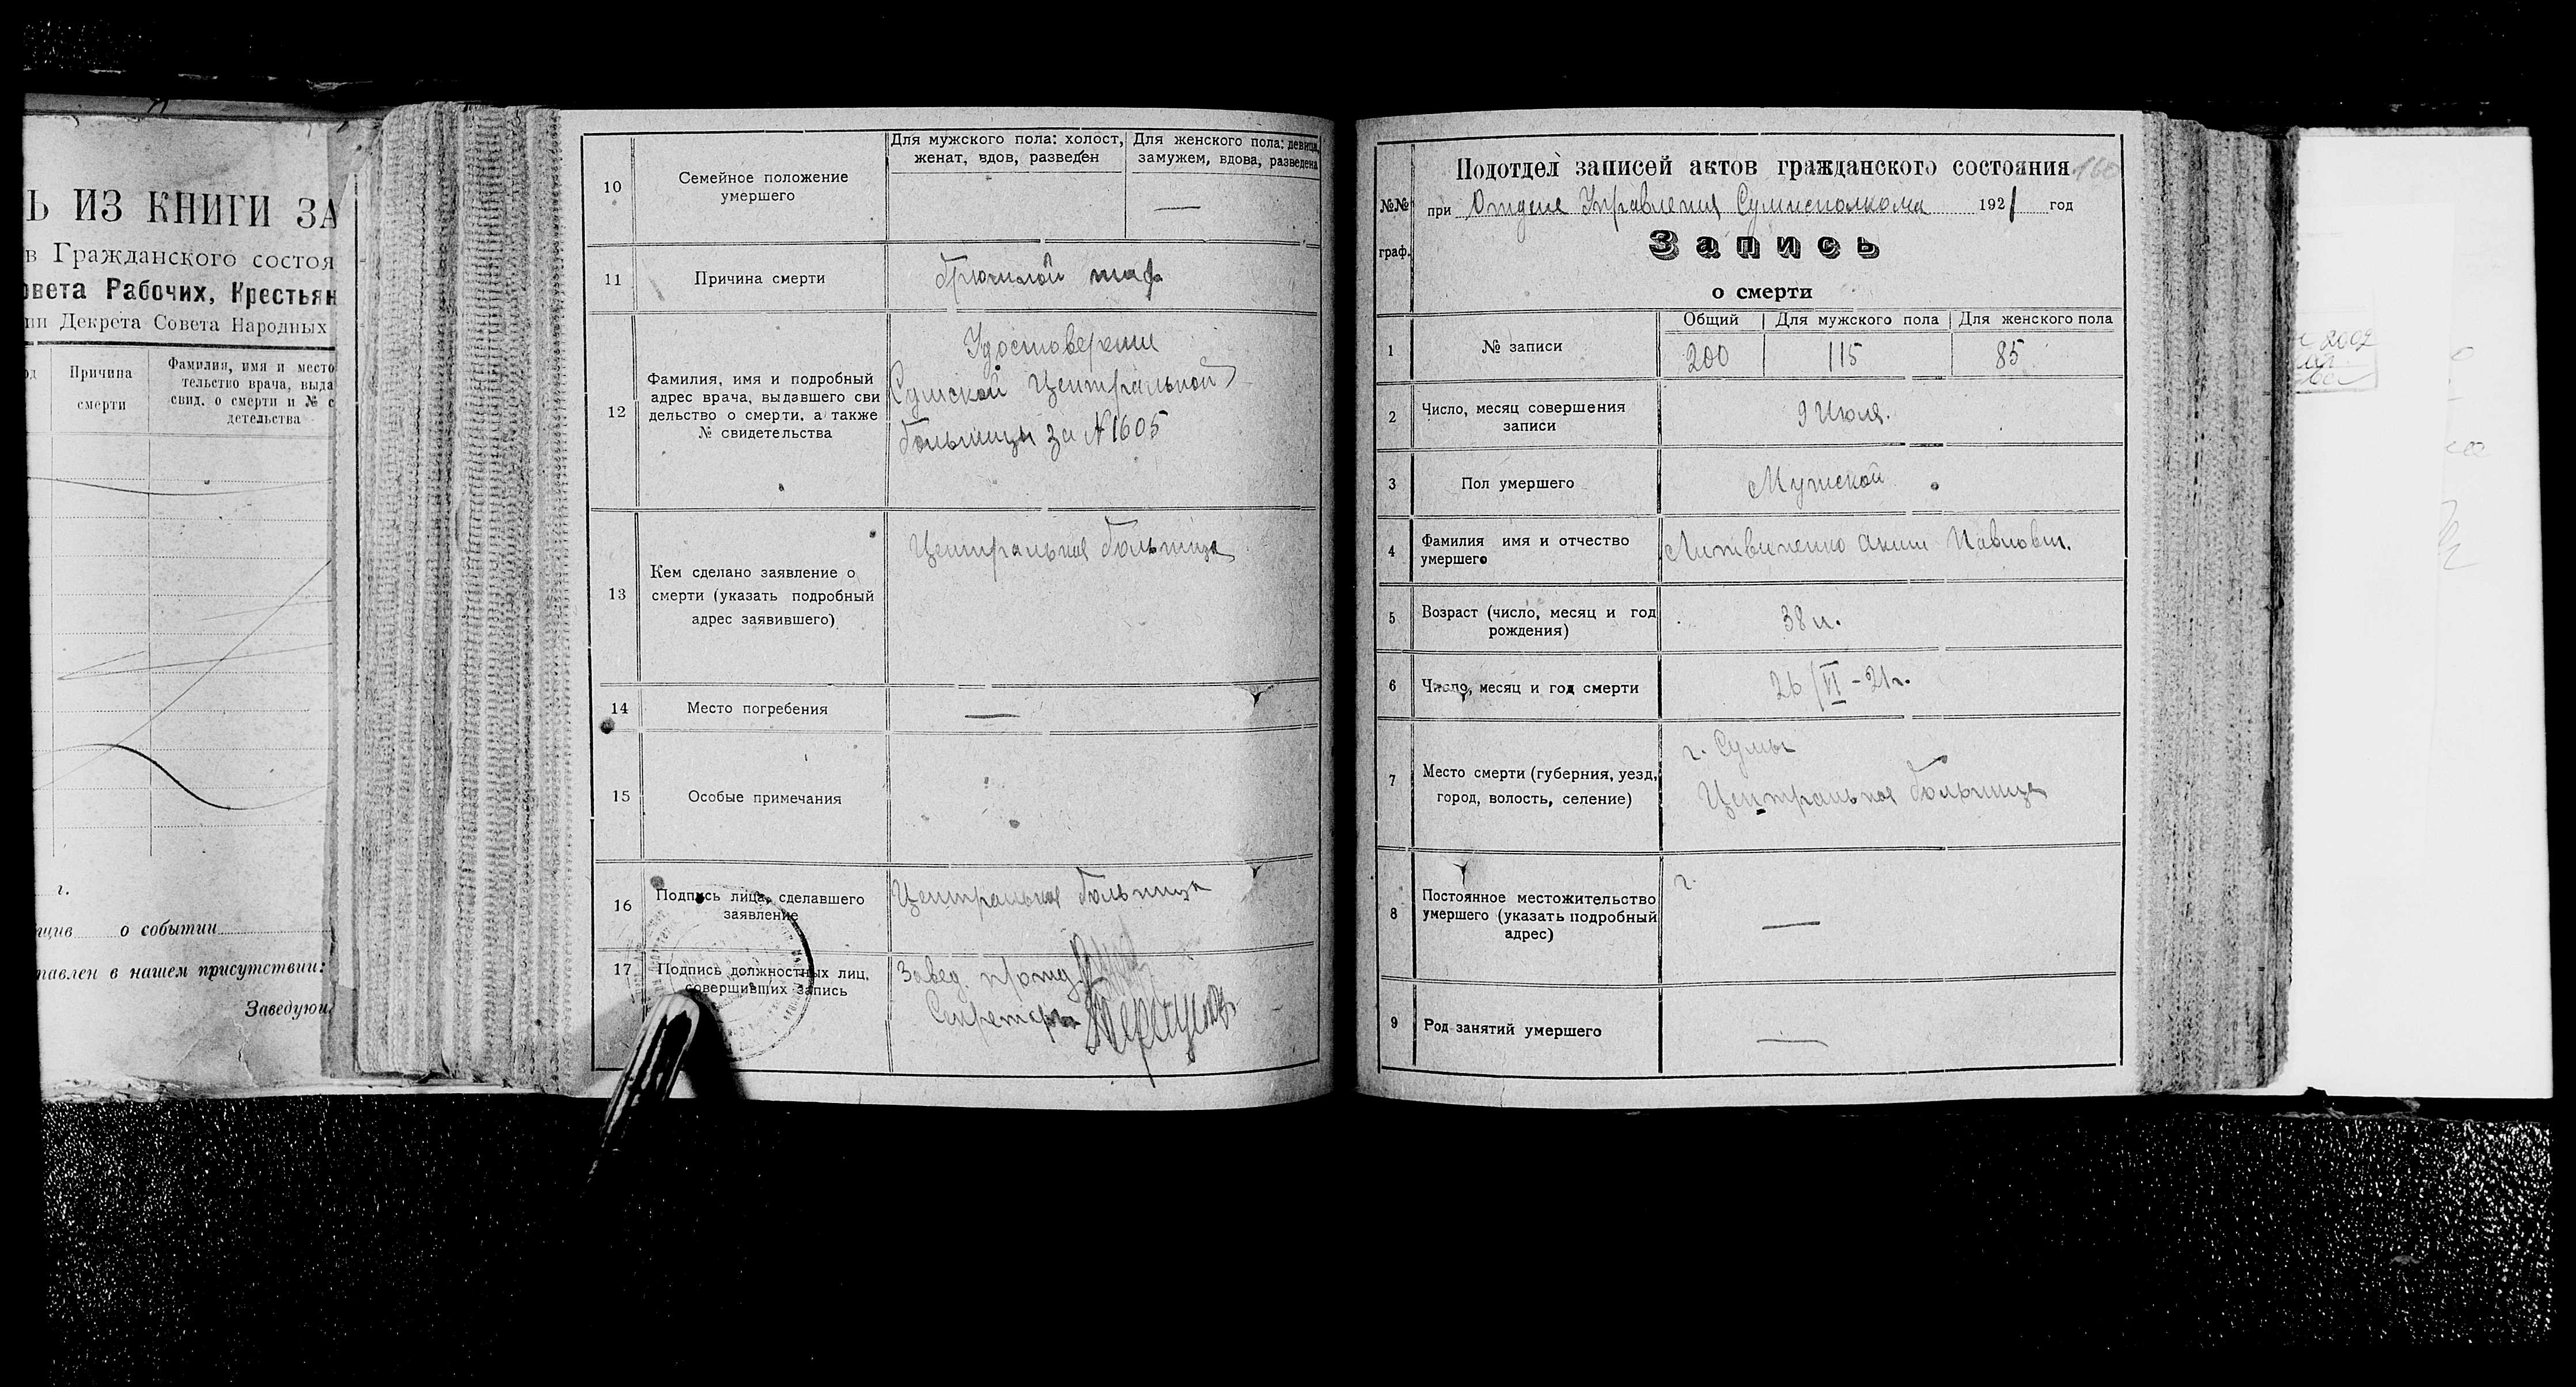 Ь ИЗ КНИГИ ЗА
в Гражданского состоя
овета Рабочих, Крестьян
ии Декрета Совета Народных
Причина
смерти
Фамилия, имя и место
тельство врача, выда
свид. о смерти и № с
детельства
г.
о событии
тавлен в нашем присутствии:
Заведующ
10
Семейное положение
умершего
Для мужского пола: холост,
женат, вдов, разведен
Для женского пола: девица,
замужем, вдова, разведена
—
11
Причина смерти
брюшной тиф
12
Фамилия, имя и подробный
адрес врача, выдавшего сви
дельство о смерти, а также
№ свидетельства
Удостоверение
Сумской Центральной
больницы за №1605
13
Кем сделано заявление о
смерти (указать подробный
адрес заявившего)
Центральная больница
14
Место погребения
—
15
Особые примечания
16
Подпись лица, сделавшего
заявление
Центральная больница
17
Подпись должностных лиц,
совершивших запись
Завед. п/отд.
Секретарь
№№
граф.
Подотдел записей актов гражданского состояния
160
при Отделе Управления Сумисполкома 1921 год
Запись
о смерти
1
№ записи
Общий
Для мужского пола
Для женского пола
200
115
85
2
Число, месяц совершения
записи
9 Июля.
3
Пол умершего
Мужской
4
Фамилия имя и отчество
умершего
Литвиненко Аким Павлович.
5
Возраст (число, месяц и год
рождения)
38 л.
6
Число, месяц и год смерти
26/VI - 21 г.
7
Место смерти (губерния, уезд,
город, волость, селение)
г. Сумы
Центральная больница
8
Постоянное местожительство
умершего (указать подробный
адрес)
г.
—
9
Род занятий умершего
—
2002